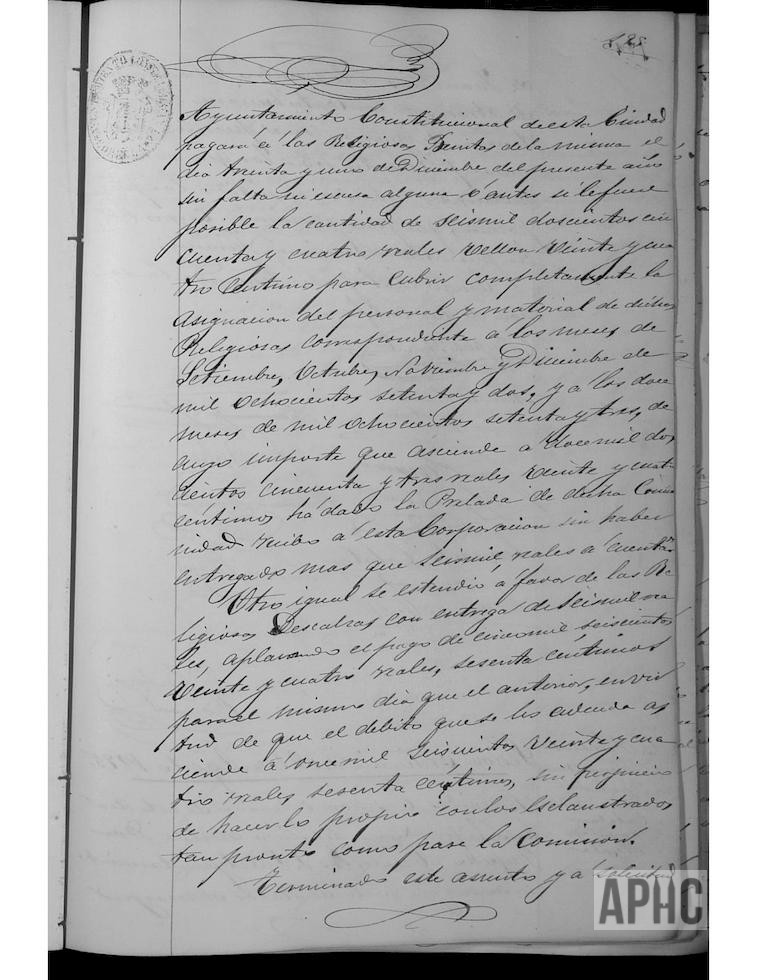 Ayuntamiento Constitucional de esta Ciudad
pagará á las Religiosas Benitas de la misma el
dia treinta y uno de Diciembre del presente año
sin falta ni escusa alguna ó antes si le fuere
posible la cantidad de seismil doscientos cin
cuenta y cuatro reales vellon veinte y cua
tro Centimos para cubrir completamente la
asignacion del personal y material de dichas
Religiosas correspondente á los meses de
Setiembre, Octubre, Noviembre y Diciembre de
mil ochocientos setenta y dos, y a los doce
meses de mil ochocientos setenta y tres, de
cuyo importe que asciende a docemil dos
cientos cincuenta y tres reales veinte y cuatro
céntimos há dado la Prelada de dicha Comu
nidad recibo á esta Corporacion sin haber
entregado mas que seismil reales á cuenta.
Otro igual se estendió á favor de las Re
ligiosas Descalzas con entrega de seismil rea
les, aplazando el pago de cincomil seiscientos
veinte y cuatro reales, sesenta céntimos
para el mismo dia que el anterior, en vir
tud de que el debito que se les adeuda as
ciende á oncemil seiscientos veinte y cua
tro reales sesenta céntimos, sin perjuicio
de hacer lo propio con los Esclaustrados
tan pronto como pase la Comision.
Terminado este asunto y a solicitud
APHC